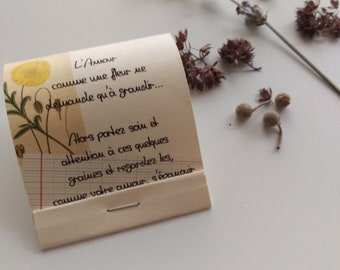 L'Amour
comme une fleur ne
demande qu'à grandir...
Alors portez soin et
attention à ces quelques
graines et regardez les,
comme votre amour, s'épanouir